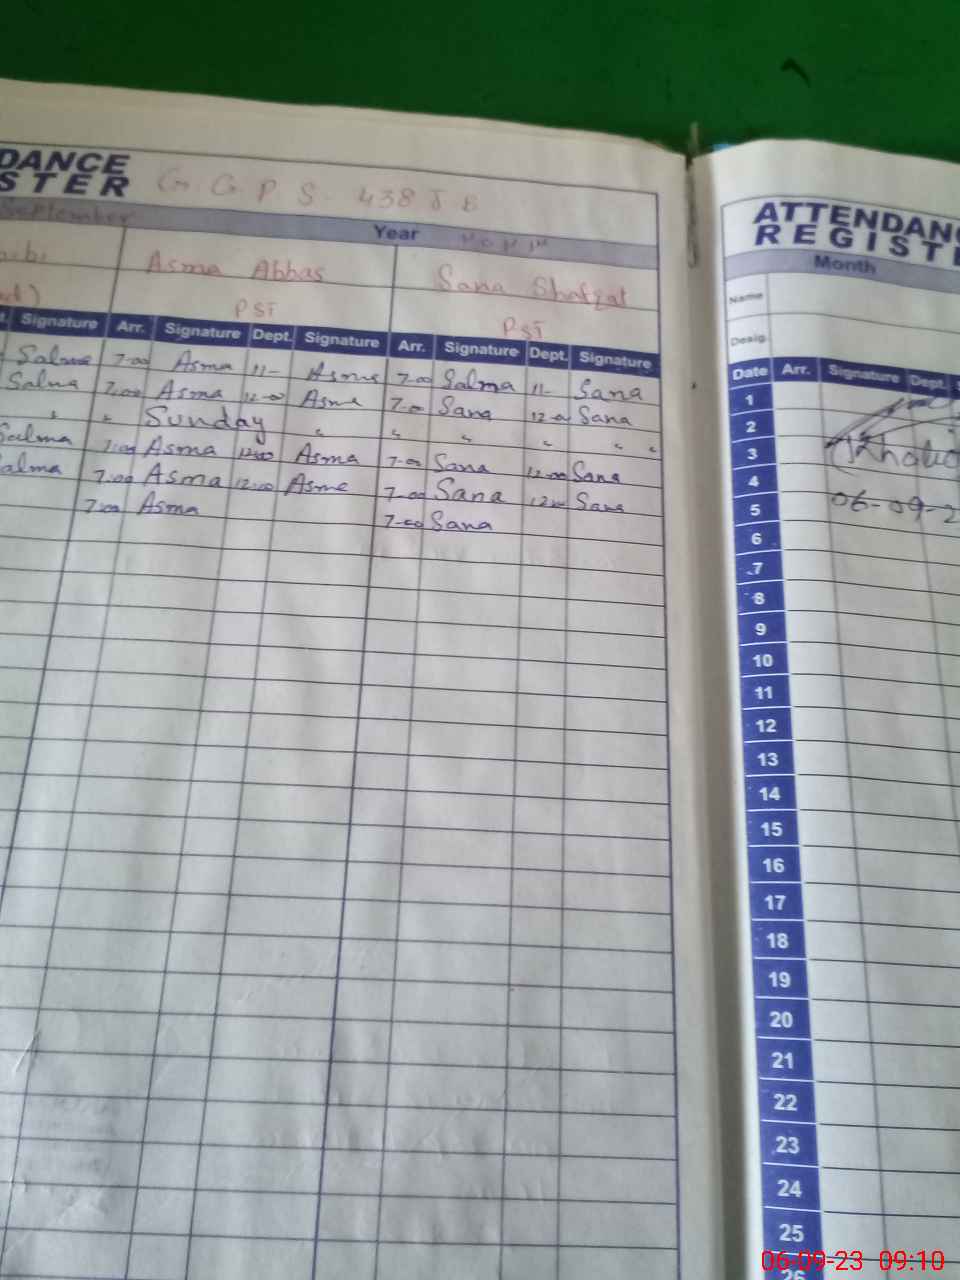 DANCE
STER G. G. P. S. 438 J B
September Year
Asma Abbas Sana Shafqat
PST PST
Signature Arr. Signature Dept. Signature Arr. Signature Dept. Signature
Salma 7-00 Asma 11- Asma 7-00 Salma 11- Sana
Salma 7-00 Asma 12-00 Asma 7-00 Sana 12-00 Sana
" " Sunday " " " " " "
Salma 7-00 Asma 12-00 Asma 7-00 Sana 12-00 Sana
Salma 7-00 Asma 12-00 Asma 7-00 Sana 12-00 Sana
7-00 Asma 7-00 Sana
ATTENDANC
REGIST
Month
Name
Desig.
Date Arr. Signature Dept.
1
2
3
4
06-09-2
5
6
7
8
9
10
11
12
13
14
15
16
17
18
19
20
21
22
23
24
25
26
06-09-23 09:10